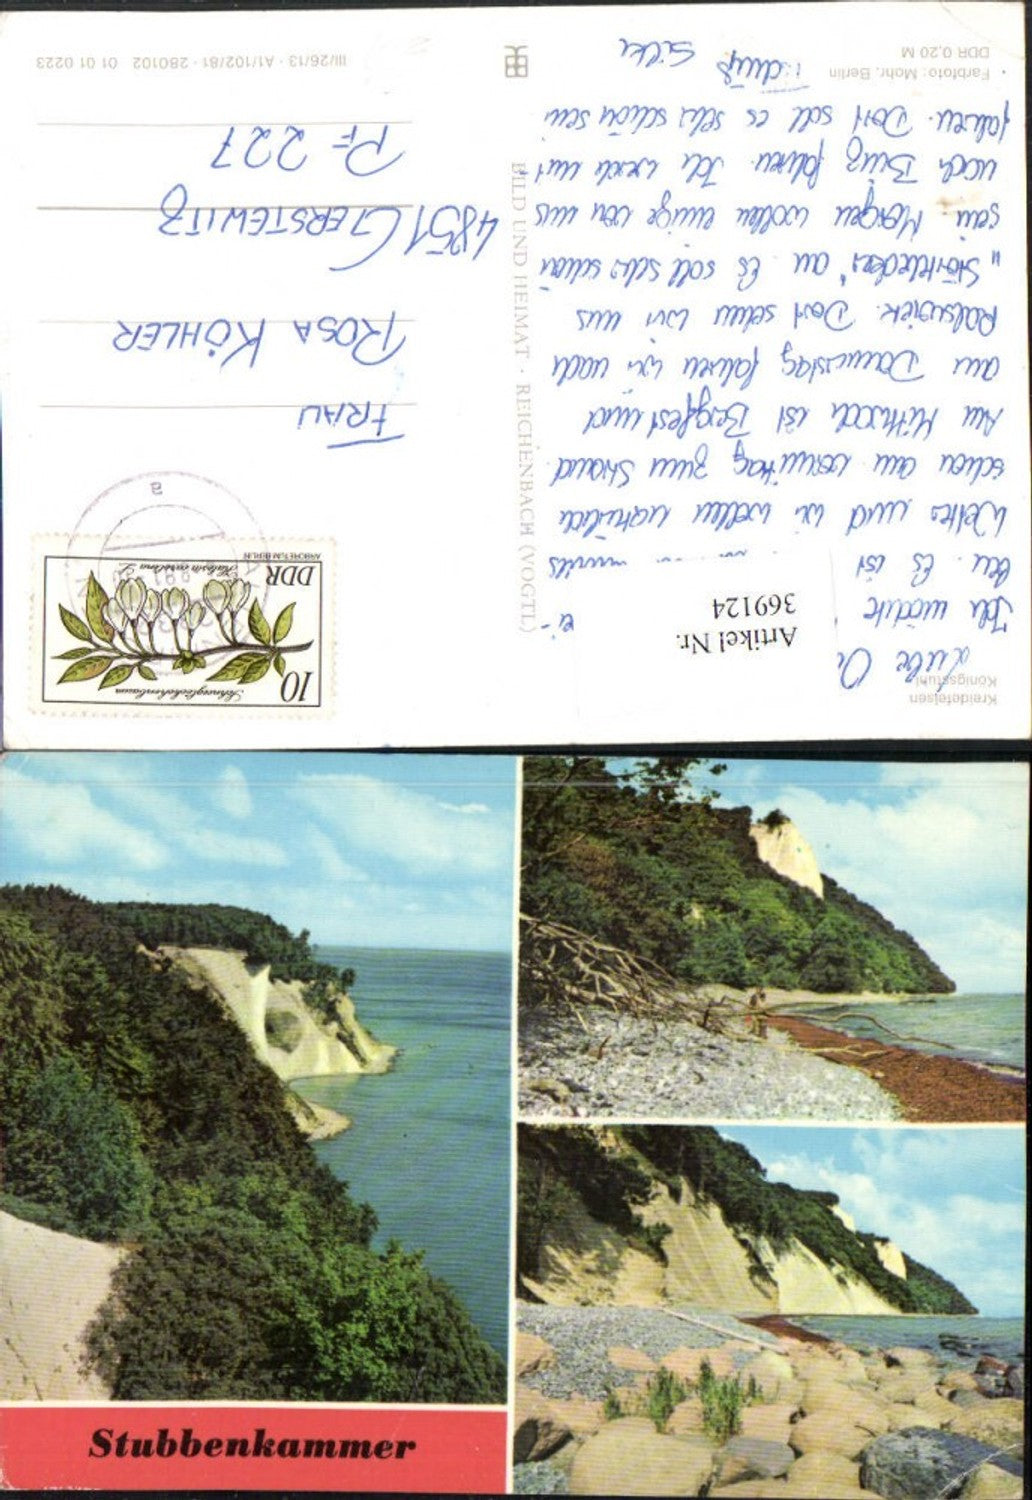 Kreidefelsen
Königsstuhl
Liebe O
Ich möchte ei-
Es ist
Wetter und wir wollen natürlich
schon am vormittag zum Strand.
Am Mittwoch ist Bergfest und
am Donnerstag fahren wir nach
Ralswiek. Dort sehen wir uns
"Störtebeker" an. Es soll sehr schön
sein. Morgen wollen einige von uns
nach Binz fahren. Ich werde mit
fahren. Dort soll es sehr schön sein
Tschüß Silke
Artikel Nr.
369124
Farbfoto: Mohr, Berlin
DDR 0,20 M
BILD UND HEIMAT · REICHENBACH (VOGTL)
10
Schneeglöckchenbaum
Halesia carolina L.
DDR
ARBORETUM BERLIN
a
FRAU
ROSA KÖHLER
4851 GERSTEWITZ
PF 227
III/26/13 · A1/102/81 · 280102 01 01 0223
Stubbenkammer